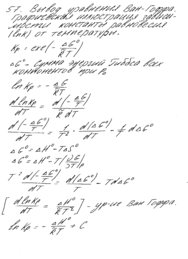 57. Вывод уравнения Ван-Гоффа.
Графическая иллюстрация зависи-
мости константы равновесия
(lnK) от температуры.
Kp = exp(-ΔG°/RT)
ΔG° - Сумма энергий Гиббса всех
компонентов при P₀
ln Kp = -ΔG°/RT
d lnKp/dT = d(-ΔG°/T)/R dT
d(-ΔG°/T)/dT = 1/T² · d(ΔG°)/dT - 1/T d ΔG°
ΔG° = ΔH° - TΔS°
ΔG° = ΔH° - T(∂G/∂T)p
T² d(-ΔG°/T)/dT = d(ΔG°)/dT - TdΔG°
[d lnKp/dT = ΔH°/RT²] - ур-ие Ван Гоффа.
ln Kp = -ΔH°/RT + C